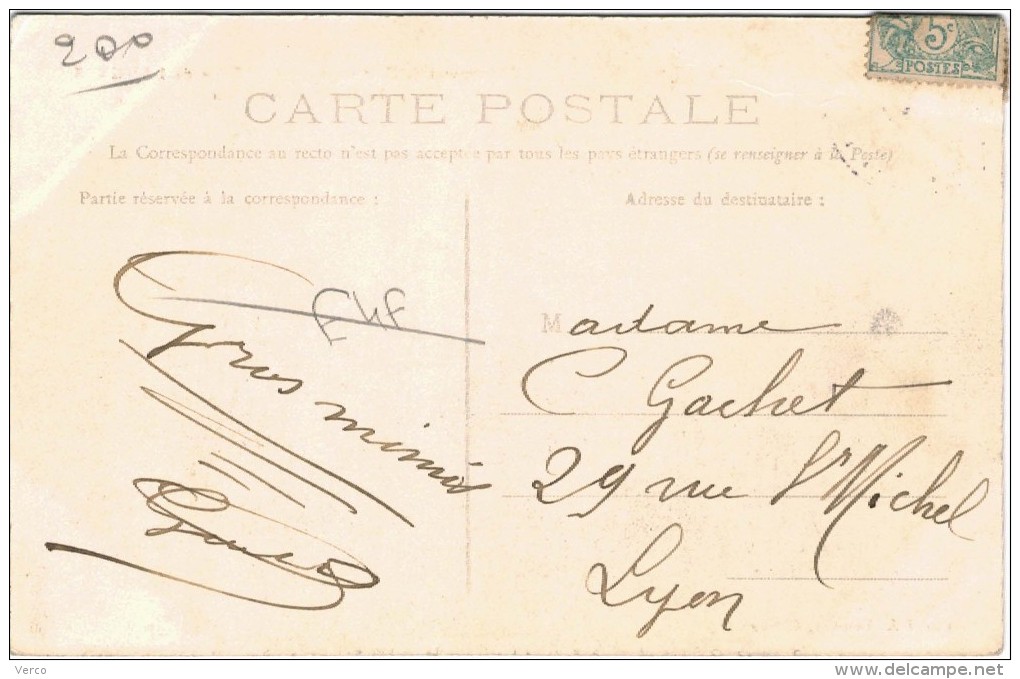 200
5c
POSTES
CARTE POSTALE
La Correspondance au recto n'est pas acceptée par tous les pays étrangers (se renseigner à la Poste)
Partie réservée à la correspondance :
Adresse du destinataire :
Gros mimis
Madame
C Gachet
29 rue St Michel
Lyon
Verco
www.delcampe.net